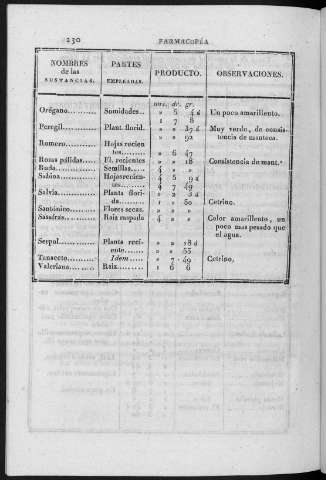 230 FARMACOPÉA
NOMBRES PARTES PRODUCTO. OBSERVACIONES.
de las
SUSTANCIAS. EMPLEADAS.
onz. dr. gr.
Orégano.......... Somidades.... » 5 4 á Un poco amarillento.
1 7 8
Peregil........... Plant florid. » » 37 á Muy verde, de consis-
» » 92 tencia de manteca.
Romero.......... Hojas recien
tes.......... » 6 47
Rosas pálidas.... Fl. recientes » » 18 Consistencia de mant.ª
Ruda.............. Semillas..... 4 » »
Sabina........... Hojas recien-
tes....... 4 5 9 á
4 7 49
Salvia............ Planta flori-
da.......... 1 » 50 Cetrino.
Santónico........ Flores secas. » » »
Sasafras.......... Raiz raspada 4 » » Color amarillento, un
poco mas pesado que
el agua.
Serpol............ Planta reci-
ente........ » » 55
Tanaceto......... Idem...... » 7 49 Cetrino.
Valeriana......... Raiz.......... 1 6 6